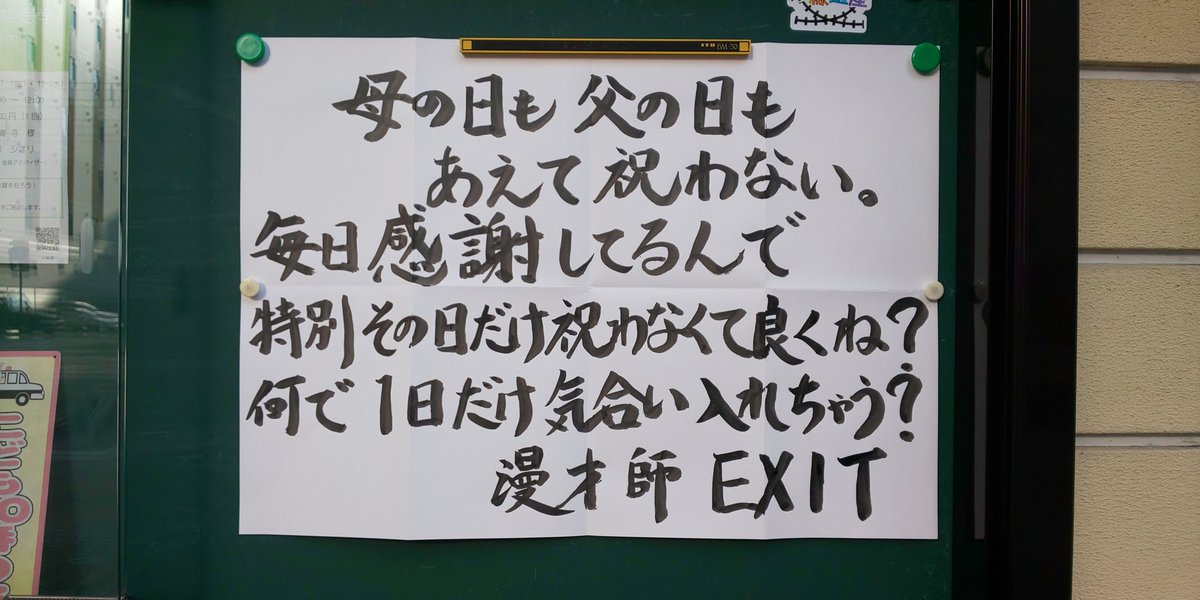 母の日も 父の日も
あえて祝わない。
毎日感謝してるんで
特別その日だけ祝わなくて良くね?
何で1日だけ気合い入れちゃう?
漫才師 EXIT